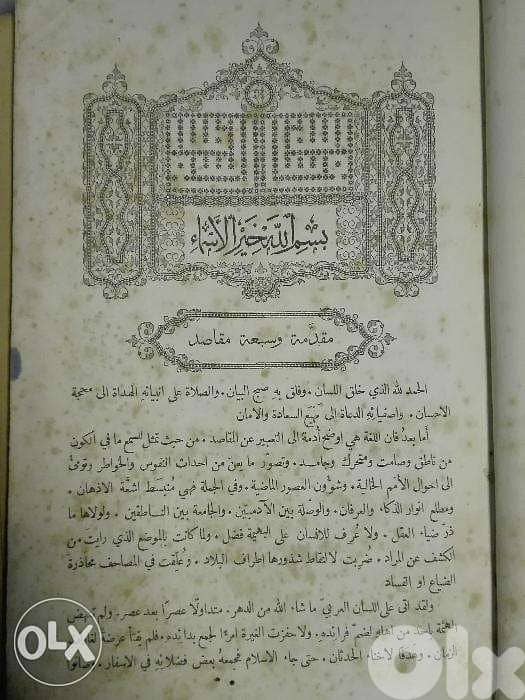 بسم الله خير الأسماء
مقدمة وسبعة مقاصد
الحمد لله الذي خلق اللسان . وفلق به صبح البيان . والصلاة على انبيائه الهداة الى محجة
الاحسان . واصفيائه الدعاة الى مَهْيَع السعادة والأمان
أما بعد فان اللغة هي اوضح أَدمة الى التعبير عن المقاصد . من حيث تمثل لسمع ما في الكون
من ناطق وصامت ومتحرك وجامد . وتصوّر ما يعن من احداث النفوس والخواطر وتومئ
الى احوال الأمم الخالية . وشؤون العصور الماضية . وفي الجملة فهي منبسط اشعّة الاذهان .
ومطلع انوار الذكاء والعرفان . والوصلة بين الآدميين . والجامعة بين الناطقين . ولولاها ما
ذر ضياء العقل . ولا عُرف للانسان على البهيمة فضل . ولما كانت بالموضع الذي رايت من
الكشف عن المراد . ضُربت لالتقاط شذورها اطراف البلاد . وعُلّقت في المصاحف محاذرة
الضياع او الفساد
ولقد اتى على اللسان العربيّ ما شاء الله من الدهر . متداولًا عصرًا بعد عصر . ولم
الهمّة باحد من اهله لضم فرائده . ولا حفزت الغيرة امرءًا لجمع بدائده . فلم يفتأ عرضة
الزمان . وهدفًا لاخناء الحدثان . حتى جاء الاسلام فجمعه بعض فضلائه في الاسفار .
OLX
OLX